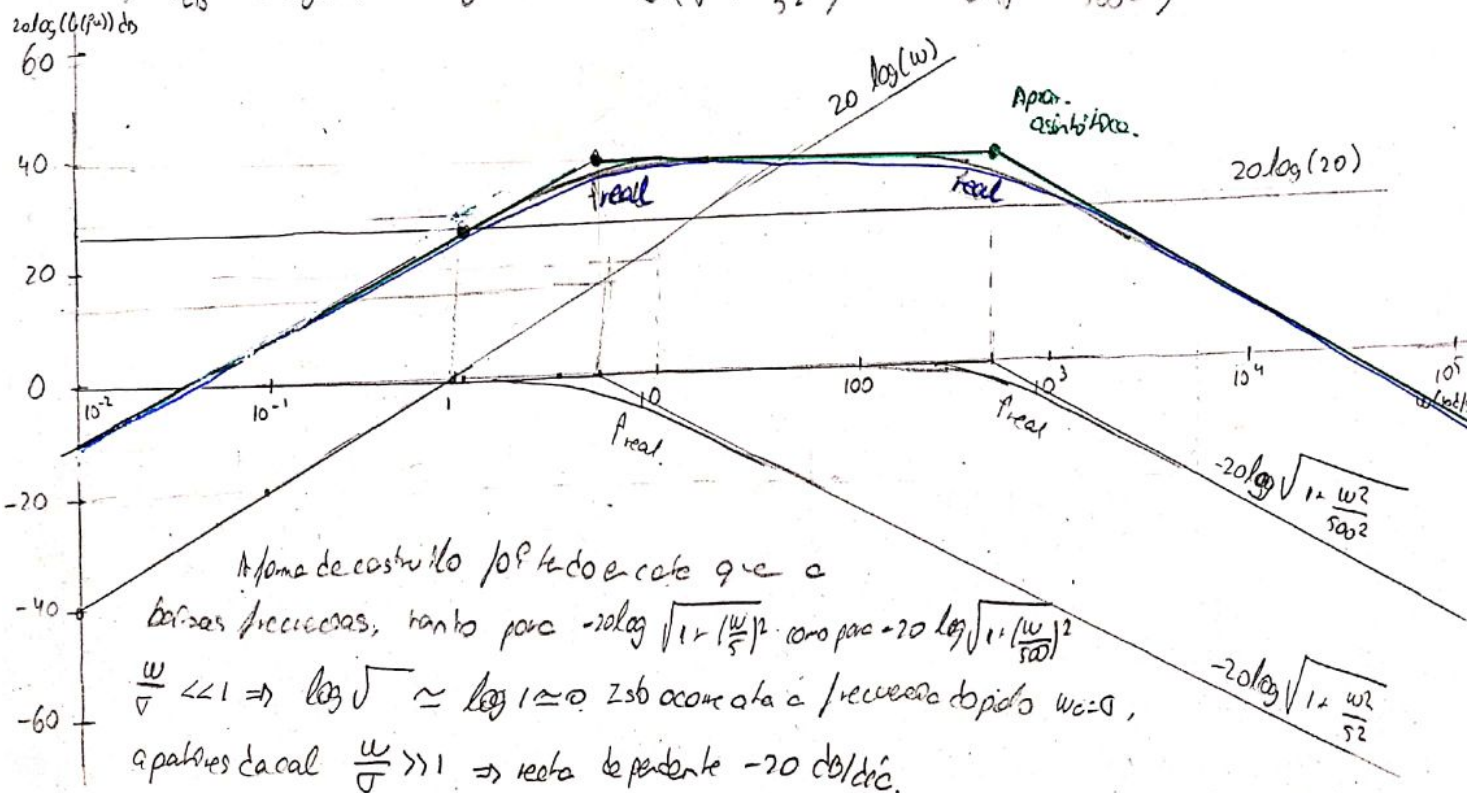 20log(G(jω)) db
60
40
20
0
-20
-40
-60
20 log(ω)
Aprox.
asintótica.
20log(20)
real
real
10^-2
10^-1
1
10
100
10^3
10^4
10^5
real
real
-20log √(1+ ω2/500^2)
-20log √(1+ ω2/52)
A forma de construílo foi tendo en conta que a
baixas frecuencias, tanto para -20log √(1+(ω/5)^2 como para -20 log √(1+(ω/500)^2
ω/σ <<1 ⇒ log √ ≃ log 1 ≃ 0 Isto acorre ata a frecuencia do pido ωc=σ,
a partires da cal ω/σ >>1 ⇒ recta de pendente -20 dB/déc.